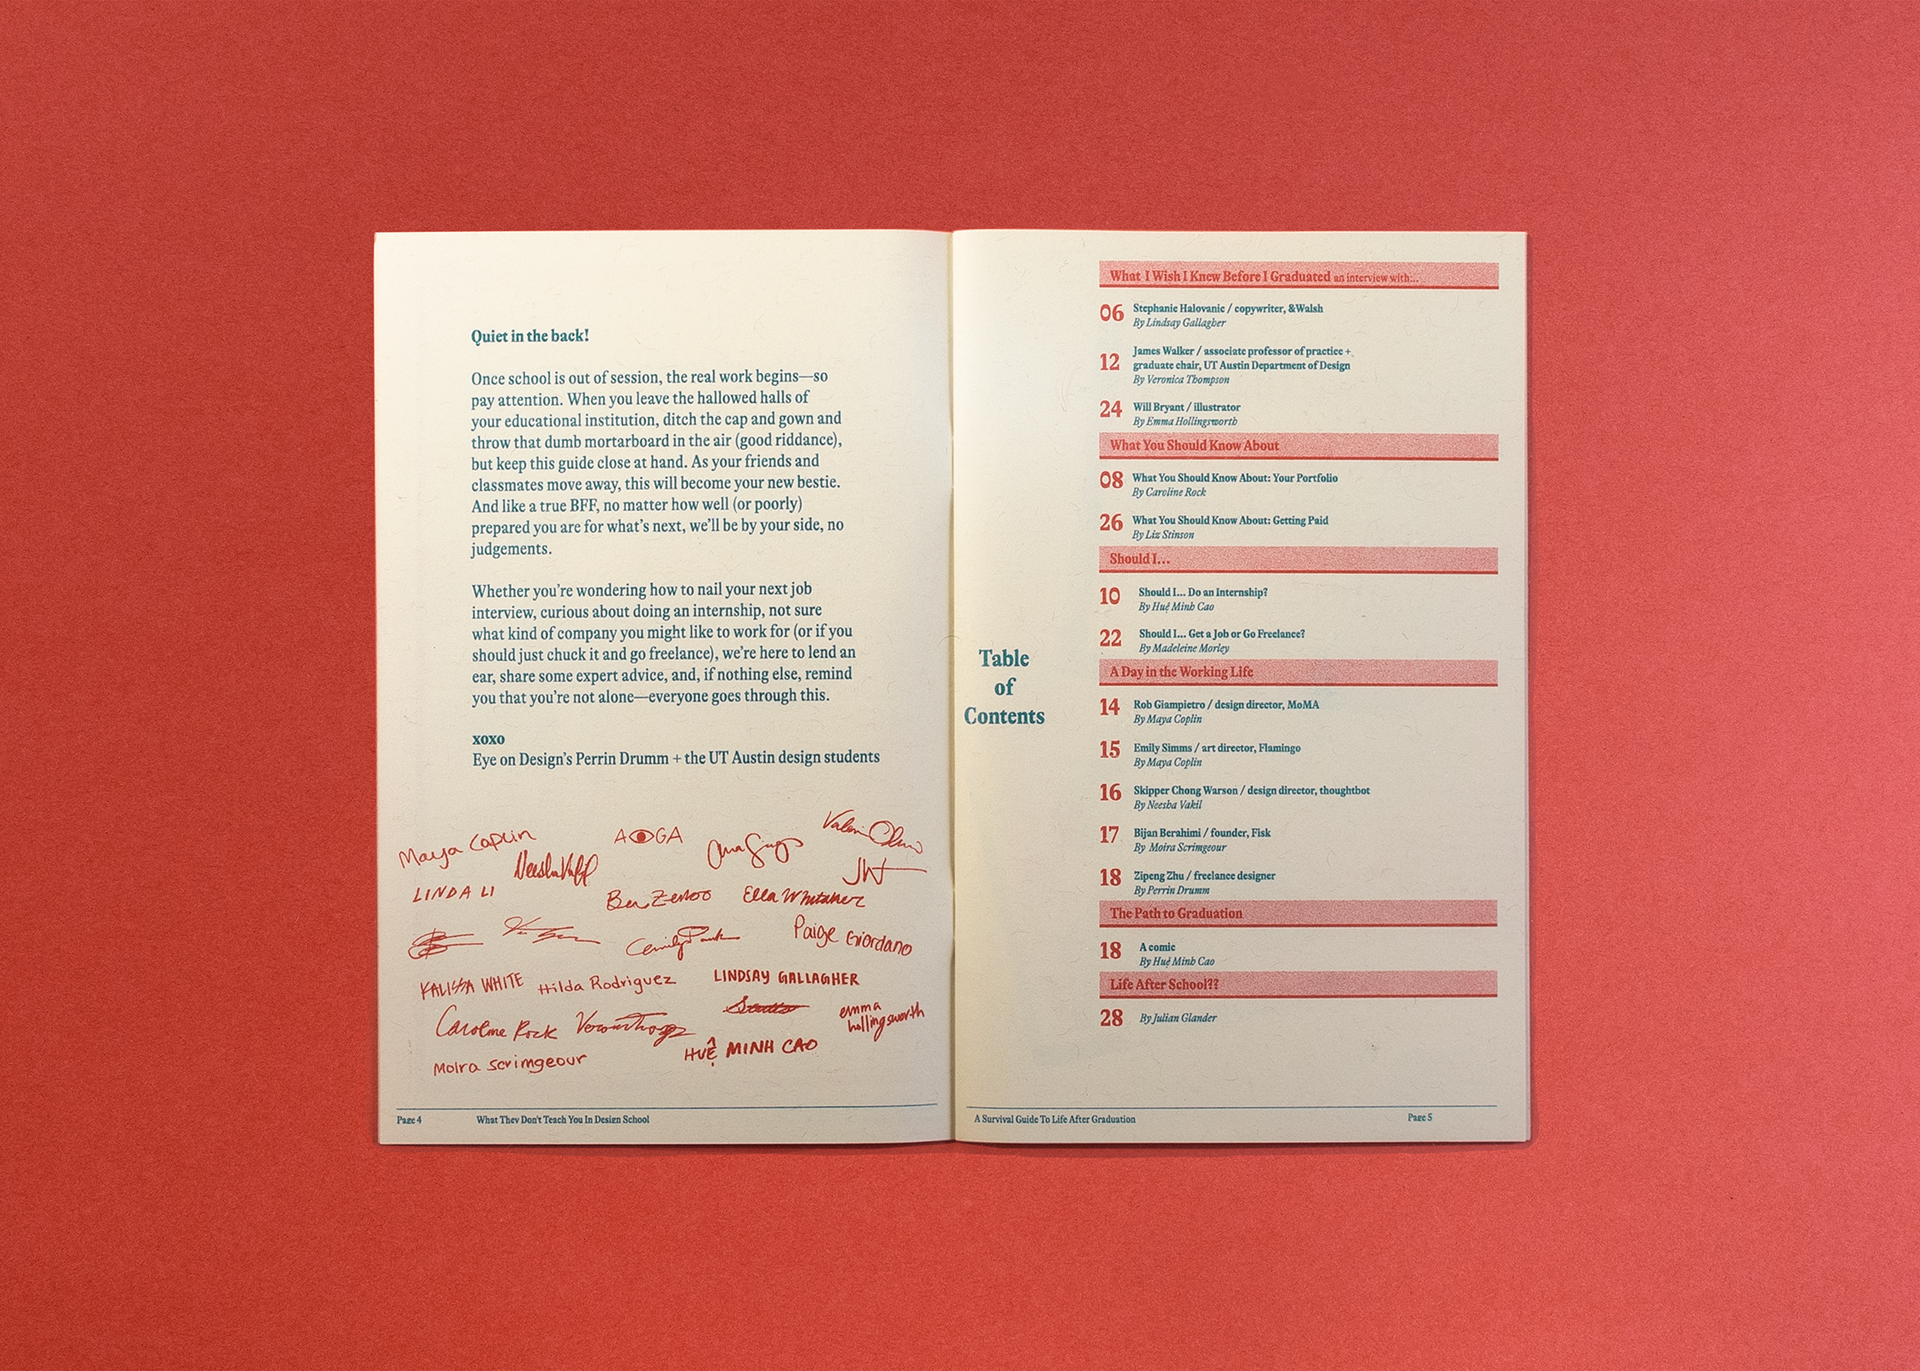 Quiet in the back!
Once school is out of session, the real work begins—so
pay attention. When you leave the hallowed halls of
your educational institution, ditch the cap and gown and
throw that dumb mortarboard in the air (good riddance),
but keep this guide close at hand. As your friends and
classmates move away, this will become your new bestie.
And like a true BFF, no matter how well (or poorly)
prepared you are for what's next, we'll be by your side, no
judgements.
Whether you're wondering how to nail your next job
interview, curious about doing an internship, not sure
what kind of company you might like to work for (or if you
should just chuck it and go freelance), we're here to lend an
ear, share some expert advice, and, if nothing else, remind
you that you're not alone—everyone goes through this.
xoxo
Eye on Design's Perrin Drumm + the UT Austin design students
Maya Coplin
Neesha Vakil
LINDA LI
Ella Whitaker
Paige Giordano
KALISSA WHITE
Hilda Rodriguez
LINDSAY GALLAGHER
Caroline Rock
emma
hollingsworth
Moira Scrimgeour
HUỆ MINH CAO
Page 4
What They Don't Teach You In Design School
Table
of
Contents
What I Wish I Knew Before I Graduated an interview with:..
06 Stephanie Halovanic / copywriter, &Walsh
By Lindsay Gallagher
12 James Walker / associate professor of practice +
graduate chair, UT Austin Department of Design
By Veronica Thompson
24 Will Bryant / illustrator
By Emma Hollingsworth
What You Should Know About
08 What You Should Know About: Your Portfolio
By Caroline Rock
26 What You Should Know About: Getting Paid
By Liz Stinson
Should I...
10 Should I... Do an Internship?
By Huệ Minh Cao
22 Should I... Get a Job or Go Freelance?
By Madeleine Morley
A Day in the Working Life
14 Rob Giampietro / design director, MoMA
By Maya Coplin
15 Emily Simms / art director, Flamingo
By Maya Coplin
16 Skipper Chong Warson / design director, thoughtbot
By Neesha Vakil
17 Bijan Berahimi / founder, Fisk
By Moira Scrimgeour
18 Zipeng Zhu / freelance designer
By Perrin Drumm
The Path to Graduation
18 A comic
By Huệ Minh Cao
Life After School??
28 By Julian Glander
A Survival Guide To Life After Graduation
Page 5